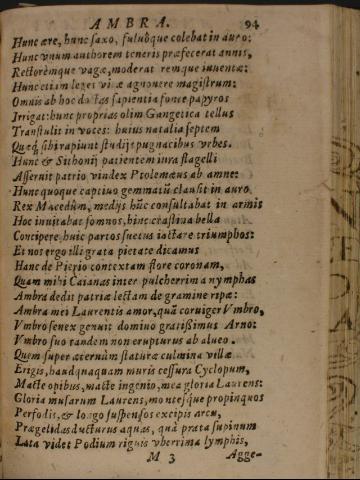 AMBRA. 94
Hunc ære, hunc saxo, fuluóque colebat in auro:
Hunc vnum authorem teneris præfecerat annis,
Rectorémque vagæ, moderatoremque iuuentæ:
Hunc etiam leges vitæ agnouere magistrum:
Omnis ab hoc doctas sapientia fonte papyros
Irrigat: hunc proprias olim Gangetica tellus
Transtulit in voces: huius natalia septem
Quæq; sibi rapiunt studijs pugnacibus vrbes.
Hunc & Sithonij patientem iura flagelli
Asseruit patrio vindex Ptolemæus ab amne:
Hunc quoque captiuo gemmatũ clausit in auro
Rex Macedũm, medijs hũc consultabat in armis
Hoc inuitabat somnos, hinc crastina bella
Concipere, huic partos suetus iactare triumphos:
Et nos ergo illi grata pietate dicamus
Hanc de Pierio contextam flore coronam,
Quam mihi Caianas inter pulcherrima nymphas
Ambra dedit patriæ lectam de gramine ripæ:
Ambra mei Laurentis amor, quã corniger Vmbro,
Vmbro senex genuit domino gratissimus Arno:
Vmbro suo tandem non erupturus ab alueo.
Quem super æternùm staturæ culmina villæ
Erigis, haudquaquam muris cessura Cyclopum,
Macte opibus, macte ingenio, mea gloria Laurens:
Gloria musarum Laurens, montesque propinquos
Perfodis, & longo suspensos excipis arcu,
Prægelidas ducturus aquas, quà prata supinum
Lata videt Podium riguis vberrima lymphis,
M 3 Agge-